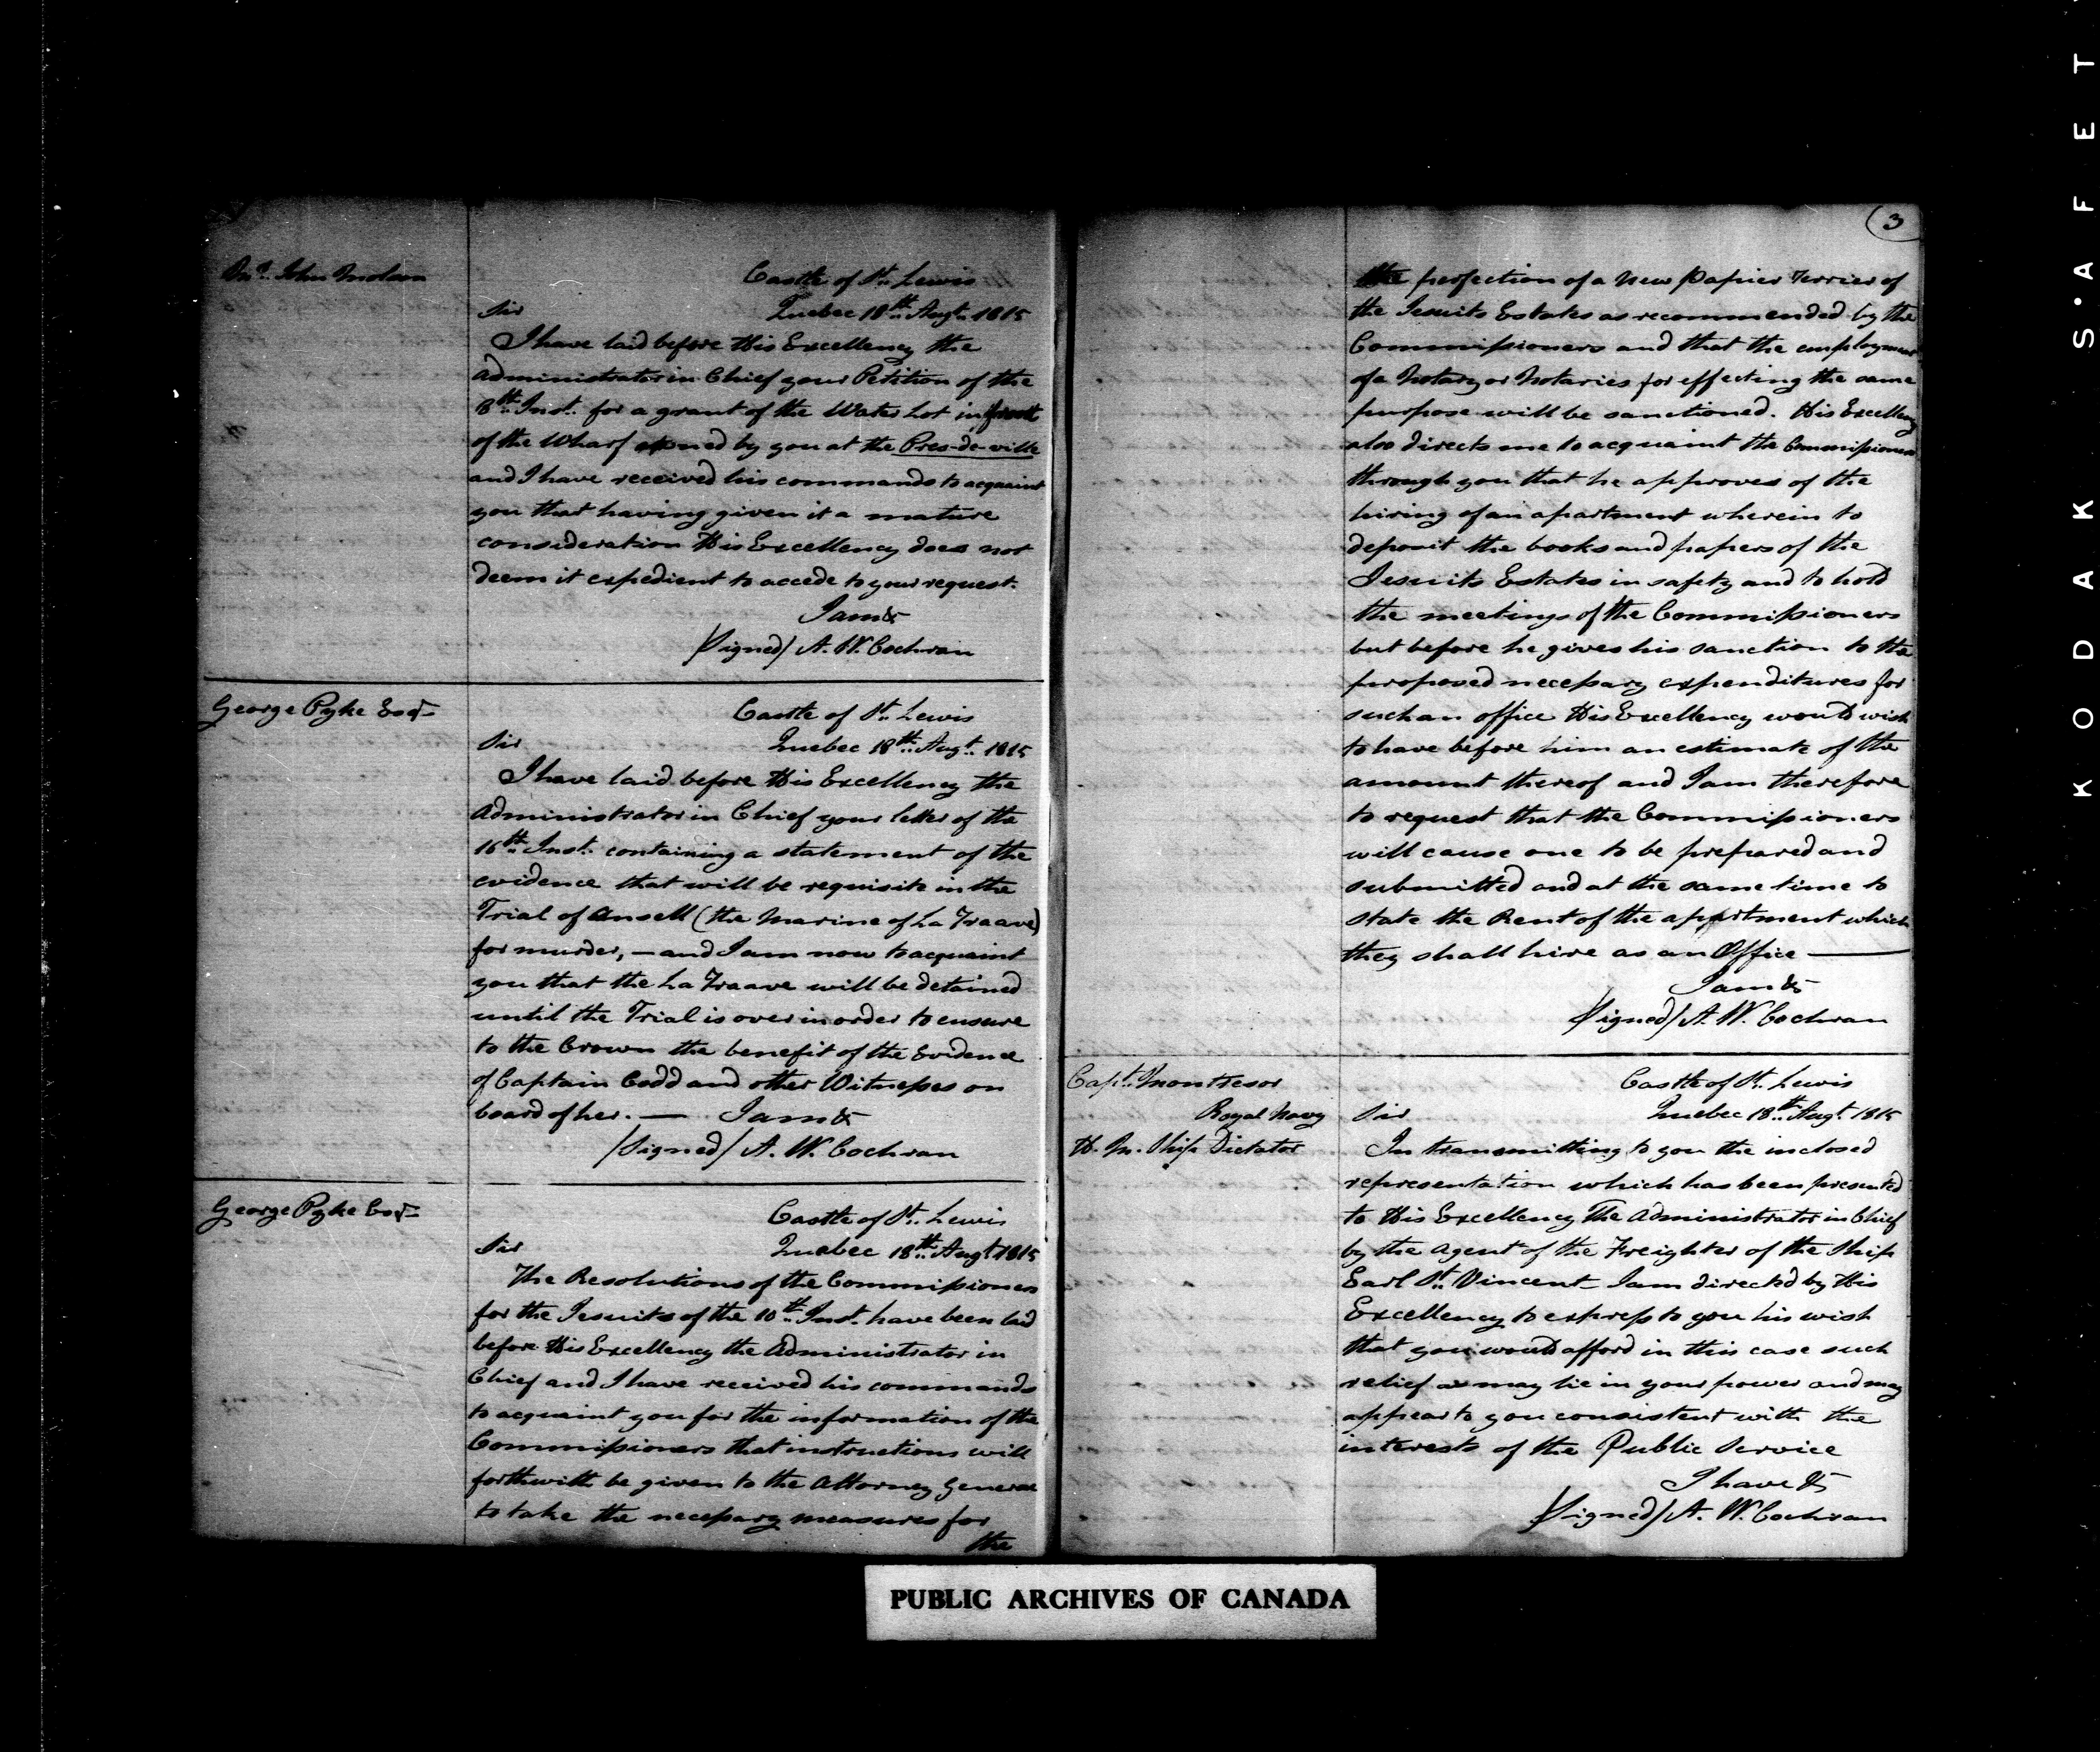 Mr. John Molson
Castle of St. Lewis
Sir Quebec 18th Augt. 1815
I have laid before His Excellency the
Administrator in Chief your Petition of the
8th Inst. for a grant of the Water Lot in front
of the Wharf owned by you at the Pres-de-ville
and I have received his commands to acquaint
you that having given it a mature
consideration His Excellency does not
deem it expedient to accede to your request.
I am &c
/Signed/ A. W. Cochran
George Pyke Esqr.
Castle of St. Lewis
Sir Quebec 18th Augt. 1815
I have laid before His Excellency the
Administrator in Chief your letter of the
16th Inst. containing a statement of the
evidence that will be requisite in the
Trial of Ansell (the Marine of La Traave)
for murder, — and I am now to acquaint
you that the La Traave will be detained
until the Trial is over in order to ensure
to the Crown the benefit of the Evidence
of Captain Codd and other Witnesses on
board of her. — I am &c
/Signed/ A. W. Cochran
George Pyke Esqr.
Castle of St. Lewis
Sir Quebec 18th Augt. 1815
The Resolutions of the Commissioners
for the Jesuits of the 10th Inst. have been laid
before His Excellency the Administrator in
Chief and I have received his commands
to acquaint you for the information of the
Commissioners that instructions will
forthwith be given to the Attorney General
to take the necessary measures for
the
3
the perfection of a New Papier Terrier of
the Jesuits Estates as recommended by the
Commissioners and that the employment
of a Notary or Notaries for effecting the same
purpose will be sanctioned. His Excellency
also directs me to acquaint the Commissioners
through you that he approves of the
hiring of an apartment wherein to
deposit the books and papers of the
Jesuits Estates in safety and to hold
the meetings of the Commissioners
but before he gives his sanction to the
proposed necessary expenditures for
such an office His Excellency would wish
to have before him an estimate of the
amount thereof and I am therefore
to request that the Commissioners
will cause one to be prepared and
submitted and at the same time to
state the Rent of the appartment which
they shall hire as an Office —
I am &c
/Signed/ A. W. Cochran
Capt. Montresor
Royal Navy
H. M. Ship Dictator
Castle of St. Lewis
Sir Quebec 18th Augt. 1815
In transmitting to you the inclosed
representation which has been presented
to His Excellency The Administrator in Chief
by the Agent of the Freighter of the Ship
Earl St. Vincent — I am directed by His
Excellency to express to you his wish
that you would afford in this case such
relief as may lie in your power and may
appear to you consistent with the
interests of the Public Service
I have &c
/Signed/ A. W. Cochran
PUBLIC ARCHIVES OF CANADA
KODAK S·AFET